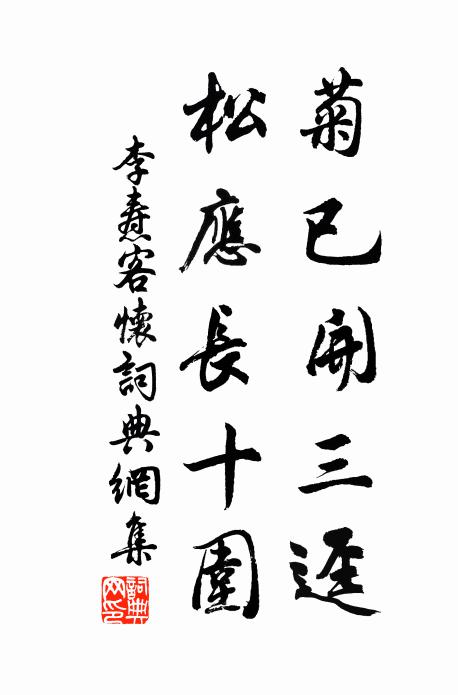 菊已開三逕
松應長十圍
李燾客懷詞典網集
詞典网印